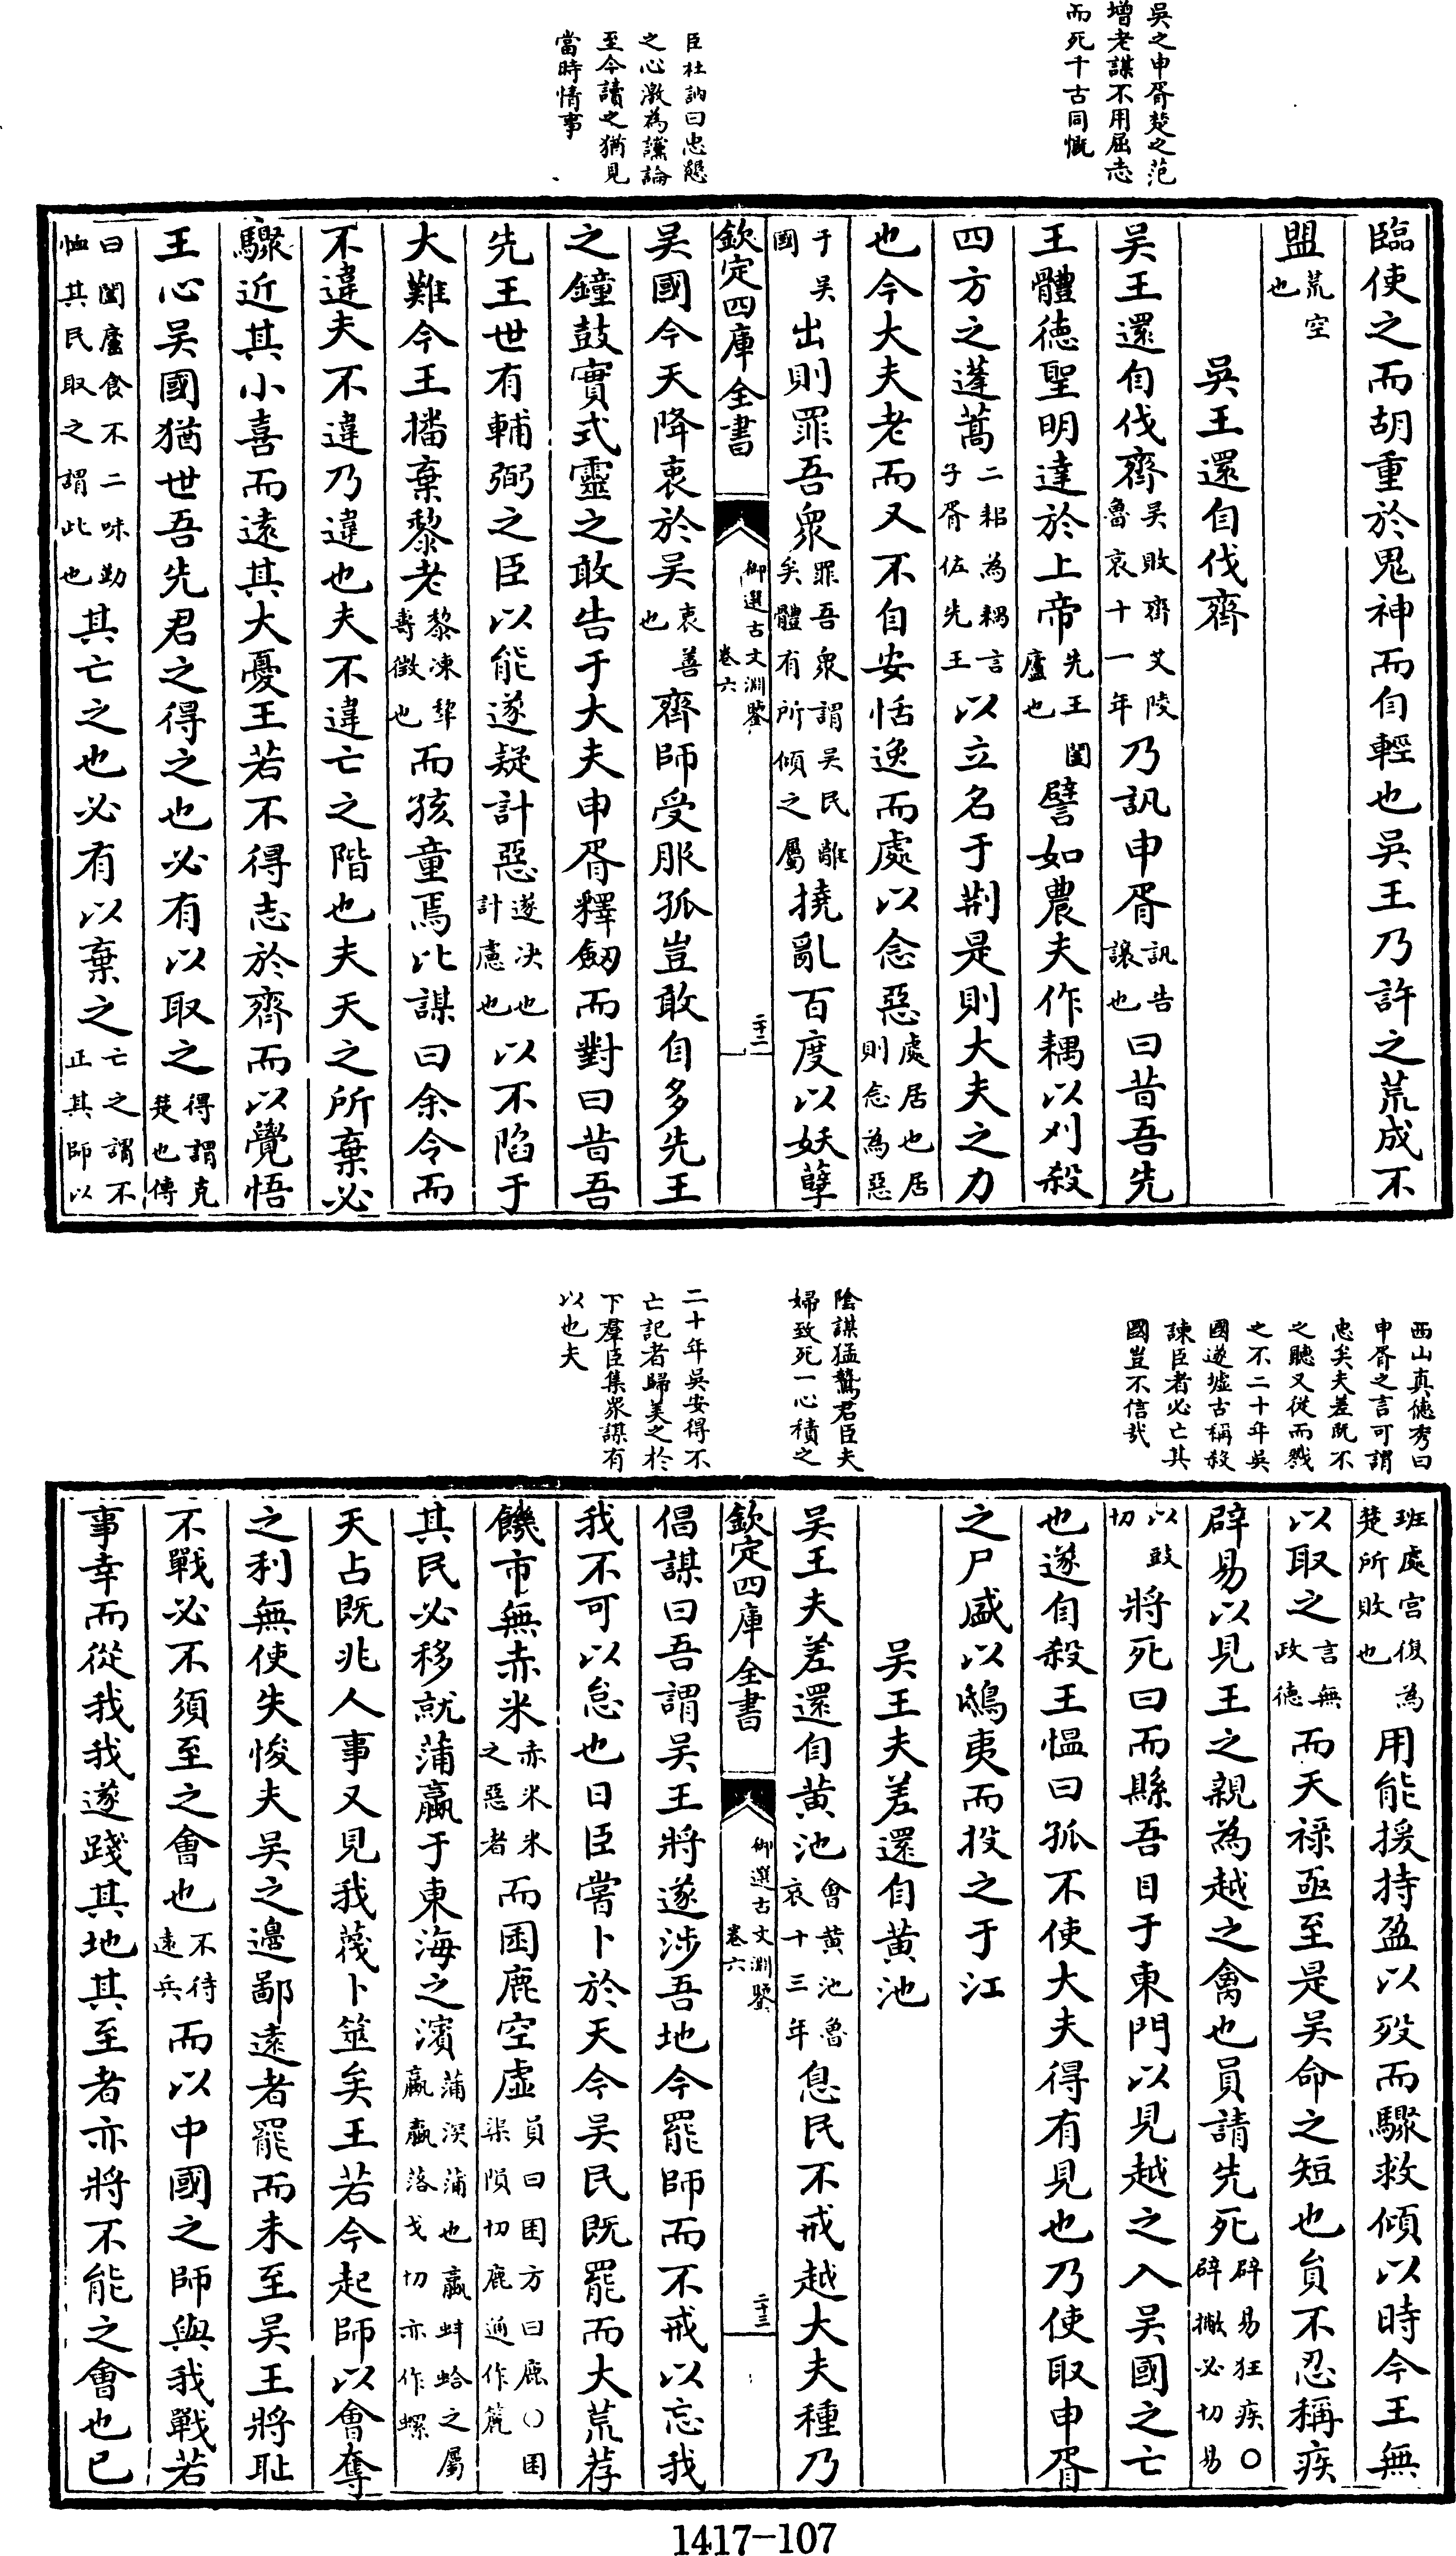 吳之申胥楚之范
增老謀不用屈志
而死千古同慨
臣杜訥曰忠懇
之心激為讜論
至今讀之猶見
當時情事
臨使之而胡重於鬼神而自輕也吳王乃許之荒成不
盟荒空也
吳王還自伐齊
吳王還自伐齊吳敗齊艾陵魯哀十一年乃訊申胥訊告讓也曰昔吾先
王體德聖明達於上帝先王闔廬也譬如農夫作耦以刈殺
四方之蓬蒿二耜為耦言子胥佐先王以立名于荆是則大夫之力
也今大夫老而又不自安恬逸而處以念惡處居也居則念為惡
于吳國出則罪吾眾罪吾眾謂吳民離矣體有所傾之屬撓亂百度以妖孽
欽定四庫全書 御選古文淵鑒卷六 二十二
吳國今天降衷於吳衷善也齊師受服孤豈敢自多先王
之鐘鼓實式靈之敢告于大夫申胥釋劒而對曰昔吾
先王世有輔弼之臣以能遂疑計惡遂決也計慮也以不陷于
大難今王播棄黎老黎凍犂壽徵也而孩童焉比謀曰余令而
不違夫不違乃違也夫不違亡之階也夫天之所棄必
驟近其小喜而遠其大憂王若不得志於齊而以覺悟
王心吳國猶世吾先君之得之也必有以取之得謂克楚也傳
曰闔廬食不二味勤恤其民取之謂此也其亡之也必有以棄之亡之謂不正其師以
西山真德秀曰
申胥之言可謂
忠矣夫差既不
之聽又從而戮
之不二十年吳
國遂墟古稱殺
諫臣者必亡其
國豈不信哉
陰謀猛鷙君臣夫
婦致死一心積之
二十年吳安得不
亡記者歸美之於
下羣臣集眾謀有
以也夫
班處宮復為楚所敗也用能援持盈以歿而驟救傾以時今王無
以取之言無政德而天祿亟至是吳命之短也員不忍稱疾
辟易以見王之親為越之禽也員請先死辟易狂疾○辟撇必切易
以豉切將死曰而縣吾目于東門以見越之入吳國之亡
也遂自殺王慍曰孤不使大夫得有見也乃使取申胥
之尸盛以鴟夷而投之于江
吳王夫差還自黃池
吳王夫差還自黃池會黃池魯哀十三年息民不戒越大夫種乃
欽定四庫全書 御選古文淵鑒卷六 二十三
倡謀曰吾謂吳王將遂涉吾地今罷師而不戒以忘我
我不可以怠也日臣嘗卜於天今吳民既罷而大荒荐
饑市無赤米赤米米之惡者而囷鹿空虛員曰囷方曰鹿○囷渠隕切鹿通作簏
其民必移就蒲蠃于東海之濱蒲深蒲也蠃蚌蛤之屬蠃蠃落戈切亦作螺
天占既兆人事又見我蔑卜筮矣王若今起師以會奪
之利無使失悛夫吳之邊鄙遠者罷而未至吳王將恥
不戰必不須至之會也不待遠兵而以中國之師與我戰若
事幸而從我我遂踐其地其至者亦將不能之會也已
1417-107